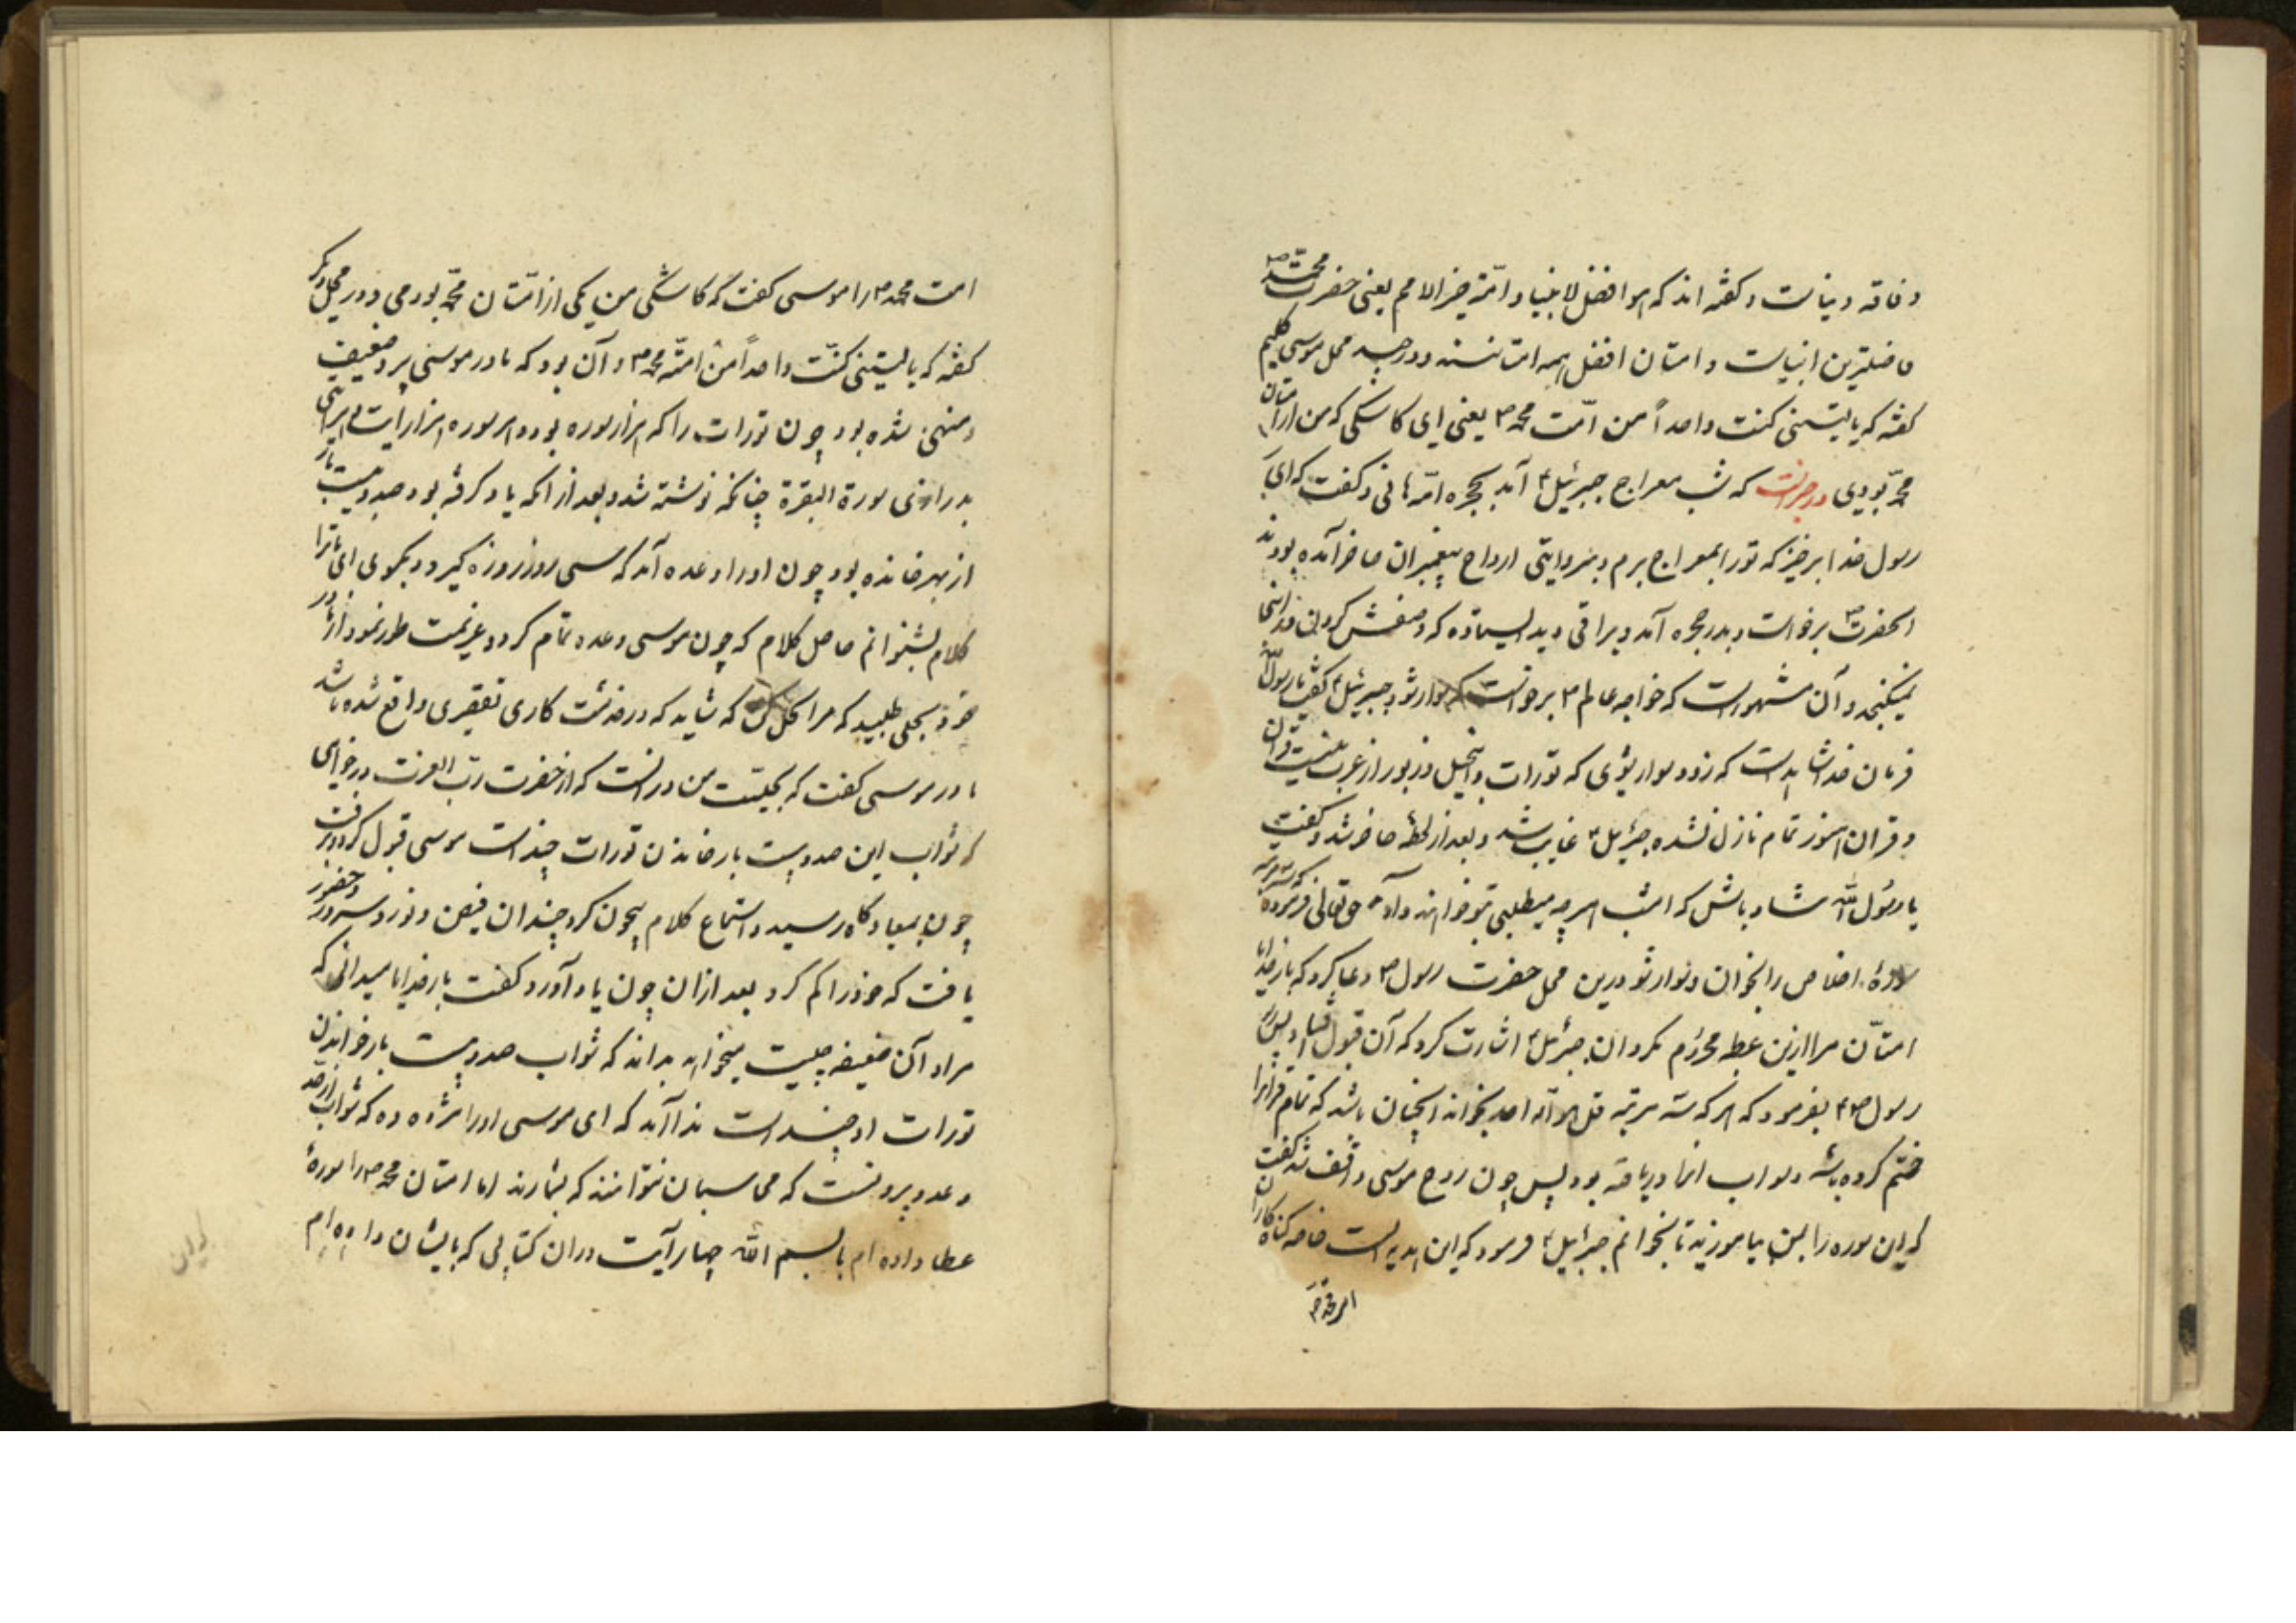 و فاقه و نیافت و گفته اند که هو افضل الانبیا و امّته خیر الامم یعنی حضرت محمّد ص
فاضلترین انبیاست و امتان افضل همه امت هستند و در چند محل موسی کلیم
گفته که یا لیتنی کنت واحداً من امّت محمد ص یعنی ای کاشکی که من از امتان
محمّد بودمی در خبر است که شب معراج جبرئیل آمد بحجره امّ هانی و گفت که ای
رسول خدا برخیز که ترا بمعراج برم و بروایتی ارواح پیغمبران حاضر آمده بودند
آنحضرت ص برخواست و بدر حجره آمد و براقی دید ایستاده که وصفش کردن در اینجا
نمیگنجد و آن مشهور است که خواجه عالم ص برخواست که سوار شود جبرئیل گفت یا رسول اللّه
فرمان خدا شده است که زود سوار نشوی که تورات و انجیل و زبور از غرب نیست قرآن
و قران هنوز تمام نازل نشده جبرئیل غایب شد و بعد از لحظه حاضر شد و گفت
یا رسول اللّه شاد باش که امشب هر چه میطلبی بتو خواهند داد حق تعالی فرموده که سه مرتبه
سورهٔ اخلاص را بخوان و سوار شو درین محل حضرت رسول ص دعا کرد که بار خدایا
امتان مرا ازین عطیه محروم مگردان جبرئیل اشارت کرد که آن قبول افتاد پس
رسول ص بفرمود که هر که سه مرتبه قل هو اللّه احد بخواند آنچنان باشد که تمام قرانرا
ختم کرده باشد و ثواب آنرا دریافته بود پس چون روح موسی واقف شد گفت
که این سوره را بمن بیاموزید تا بخوانم جبرئیل فرمود که این هدیه است خاصه گناه کاران
امت محمد ص
امت محمد ص را موسی گفت که کاشکی من یکی از امّتان محمّد بودمی و در محل دیگر
گفته که یا لیتنی کنت واحداً من امّة محمد ص و آن بود که مادر موسی پیر و ضعیف
و منحنی شده بود چون تورات را که هزار سوره بود و هر سوره هزار آیت و هر آیتی
بدرازی سورة البقرة چنانکه نوشته شد و بعد از آنکه یاد گرفته بود صد و بیست بار
از بهر خوانده بود چون او را وعده آمد که سی روز روزه گیرد و بگوی ای تا ترا
کلام بشنوانم حاصل کلام که چون موسی وعده تمام کرد و عزیمت طور نمود از مادر
خود بحلی طلبید که مرا بحل کن که شاید که در خدمت کاری تقصیری واقع شده باشد
مادر موسی گفت که بحلیت من در آنست که از حضرت رب العزت درخواهی
که ثواب این صد و بیست بار خواندن تورات چند است موسی قبول کرد و برفت
چون بمیعادگاه رسید و استماع کلام بیچون کرد چندان فیض و نور و سرور و حضور
یافت که خود را گم کرد بعد از آن چون یاد آورد گفت بار خدایا میدانی که
مراد آن ضعیفه چیست میخواهد بداند که ثواب صد و بیست بار خواندن
تورات او چند است ندا آمد که ای موسی او را مژده ده که ثواب از حد
و عدد بیرونست که محاسبان نتوانند که بشمارند اما امتان محمد ص را سورهٔ
عطا داده ام با بسم اللّه چهار آیت در آن کتابی که بایشان داده ام